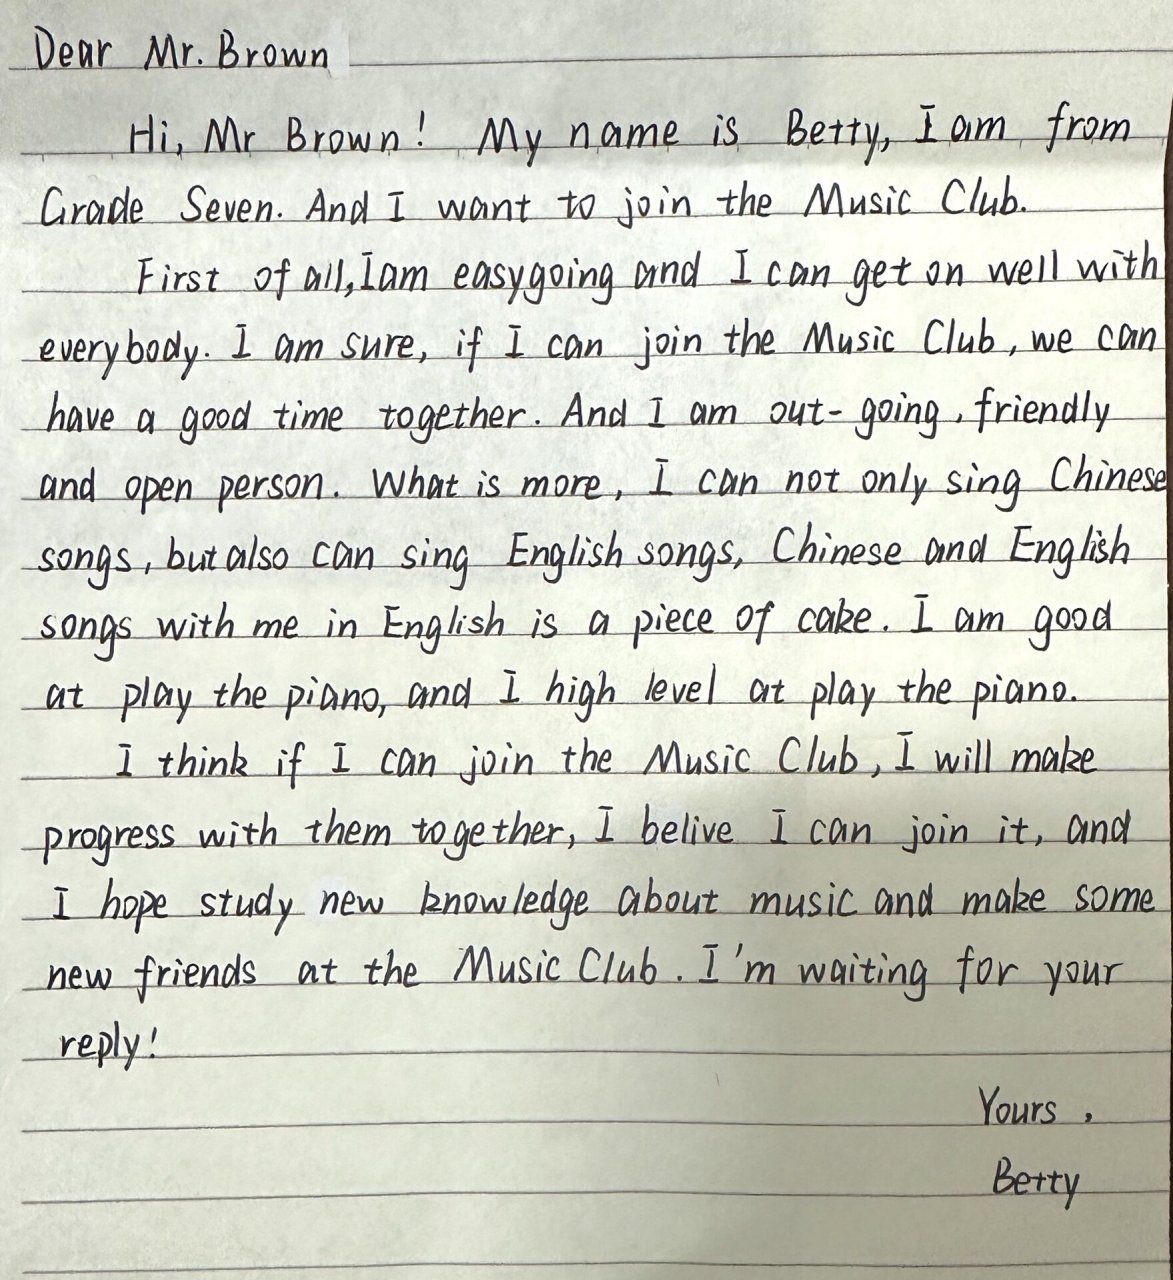 Dear Mr. Brown
Hi, Mr Brown! My name is Betty, I am from
Grade Seven. And I want to join the Music Club.
First of all, I am easygoing and I can get on well with
everybody. I am sure, if I can join the Music Club, we can
have a good time together. And I am out-going, friendly
and open person. What is more, I can not only sing Chinese
songs, but also can sing English songs, Chinese and English
songs with me in English is a piece of cake. I am good
at play the piano, and I high level at play the piano.
I think if I can join the Music Club, I will make
progress with them together, I belive I can join it, and
I hope study new knowledge about music and make some
new friends at the Music Club. I'm waiting for your
reply!
Yours,
Betty